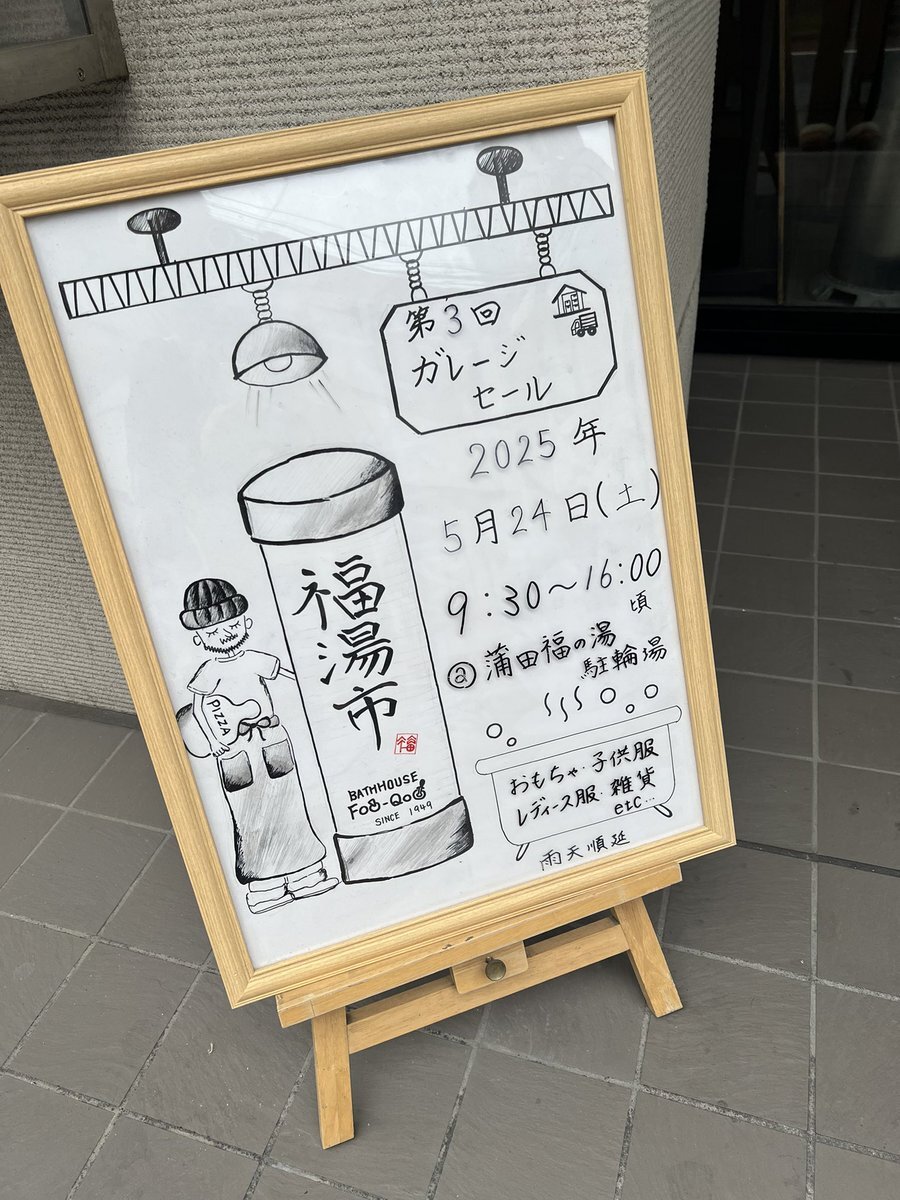 第3回
ガレージ
セール
2025年
5月24日(土)
9:30～16:00
頃
@蒲田福の湯
駐輪場
おもちゃ・子供服
レディース服 雑貨
etc...
雨天順延
福湯市
福
BATHHOUSE
FOO-QOO
SINCE 1949
PIZZA